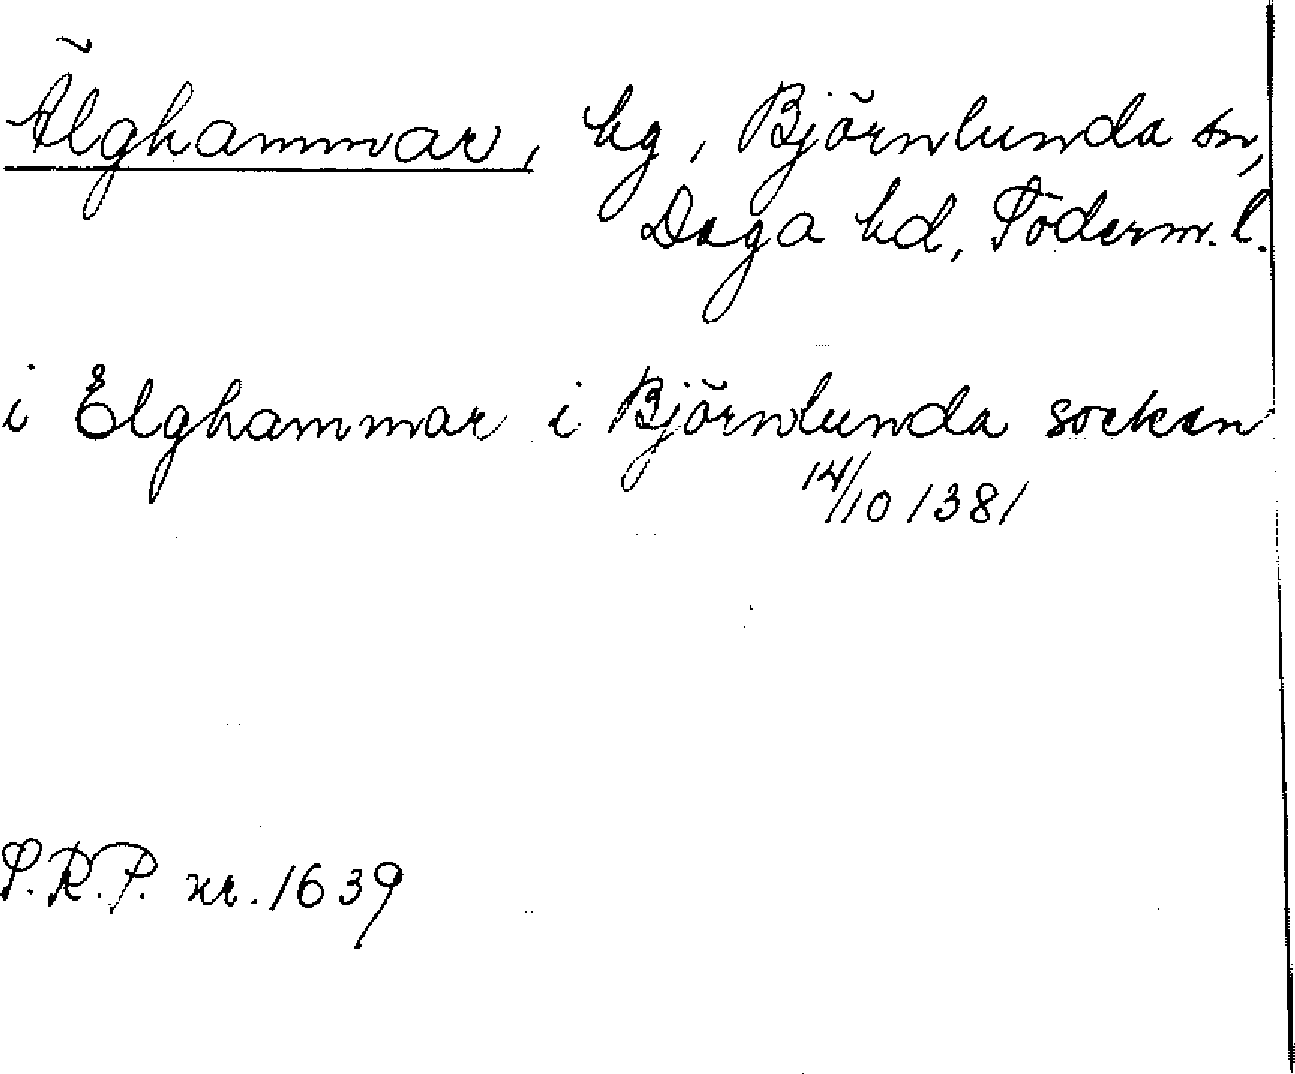 Älghammar, hg, Björnlunda sn,
Daga hd, Söderm. l.
i Elghammar i Björnlunda socken
14/10 1381
S.R.P. nr. 1639